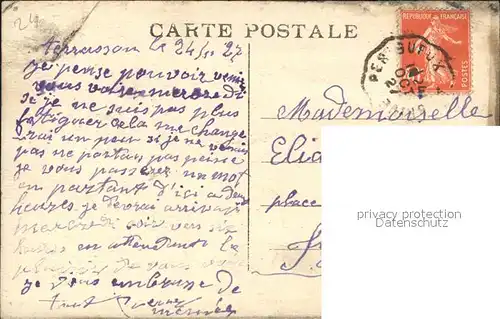 24
CARTE POSTALE
REPUBLIQUE FRANÇAISE
POSTES
PERIGUEUX
OCT
Terrasson le 24/10 27
je pense pouvoir venir
vous voir mercredi
si je ne suis pas plus
fatiguer cela me change
rai un peu si je ne venir
pas ne portan pas peine
je vous passerez un mot
en partant d'isi a deux
heures je devrai arriver
mercredi soir vers six
heures en attendant le
plaisir de vous voir
je vous embrasse de
tout
Mademoiselle
Elia
place
privacy protection
Datenschutz